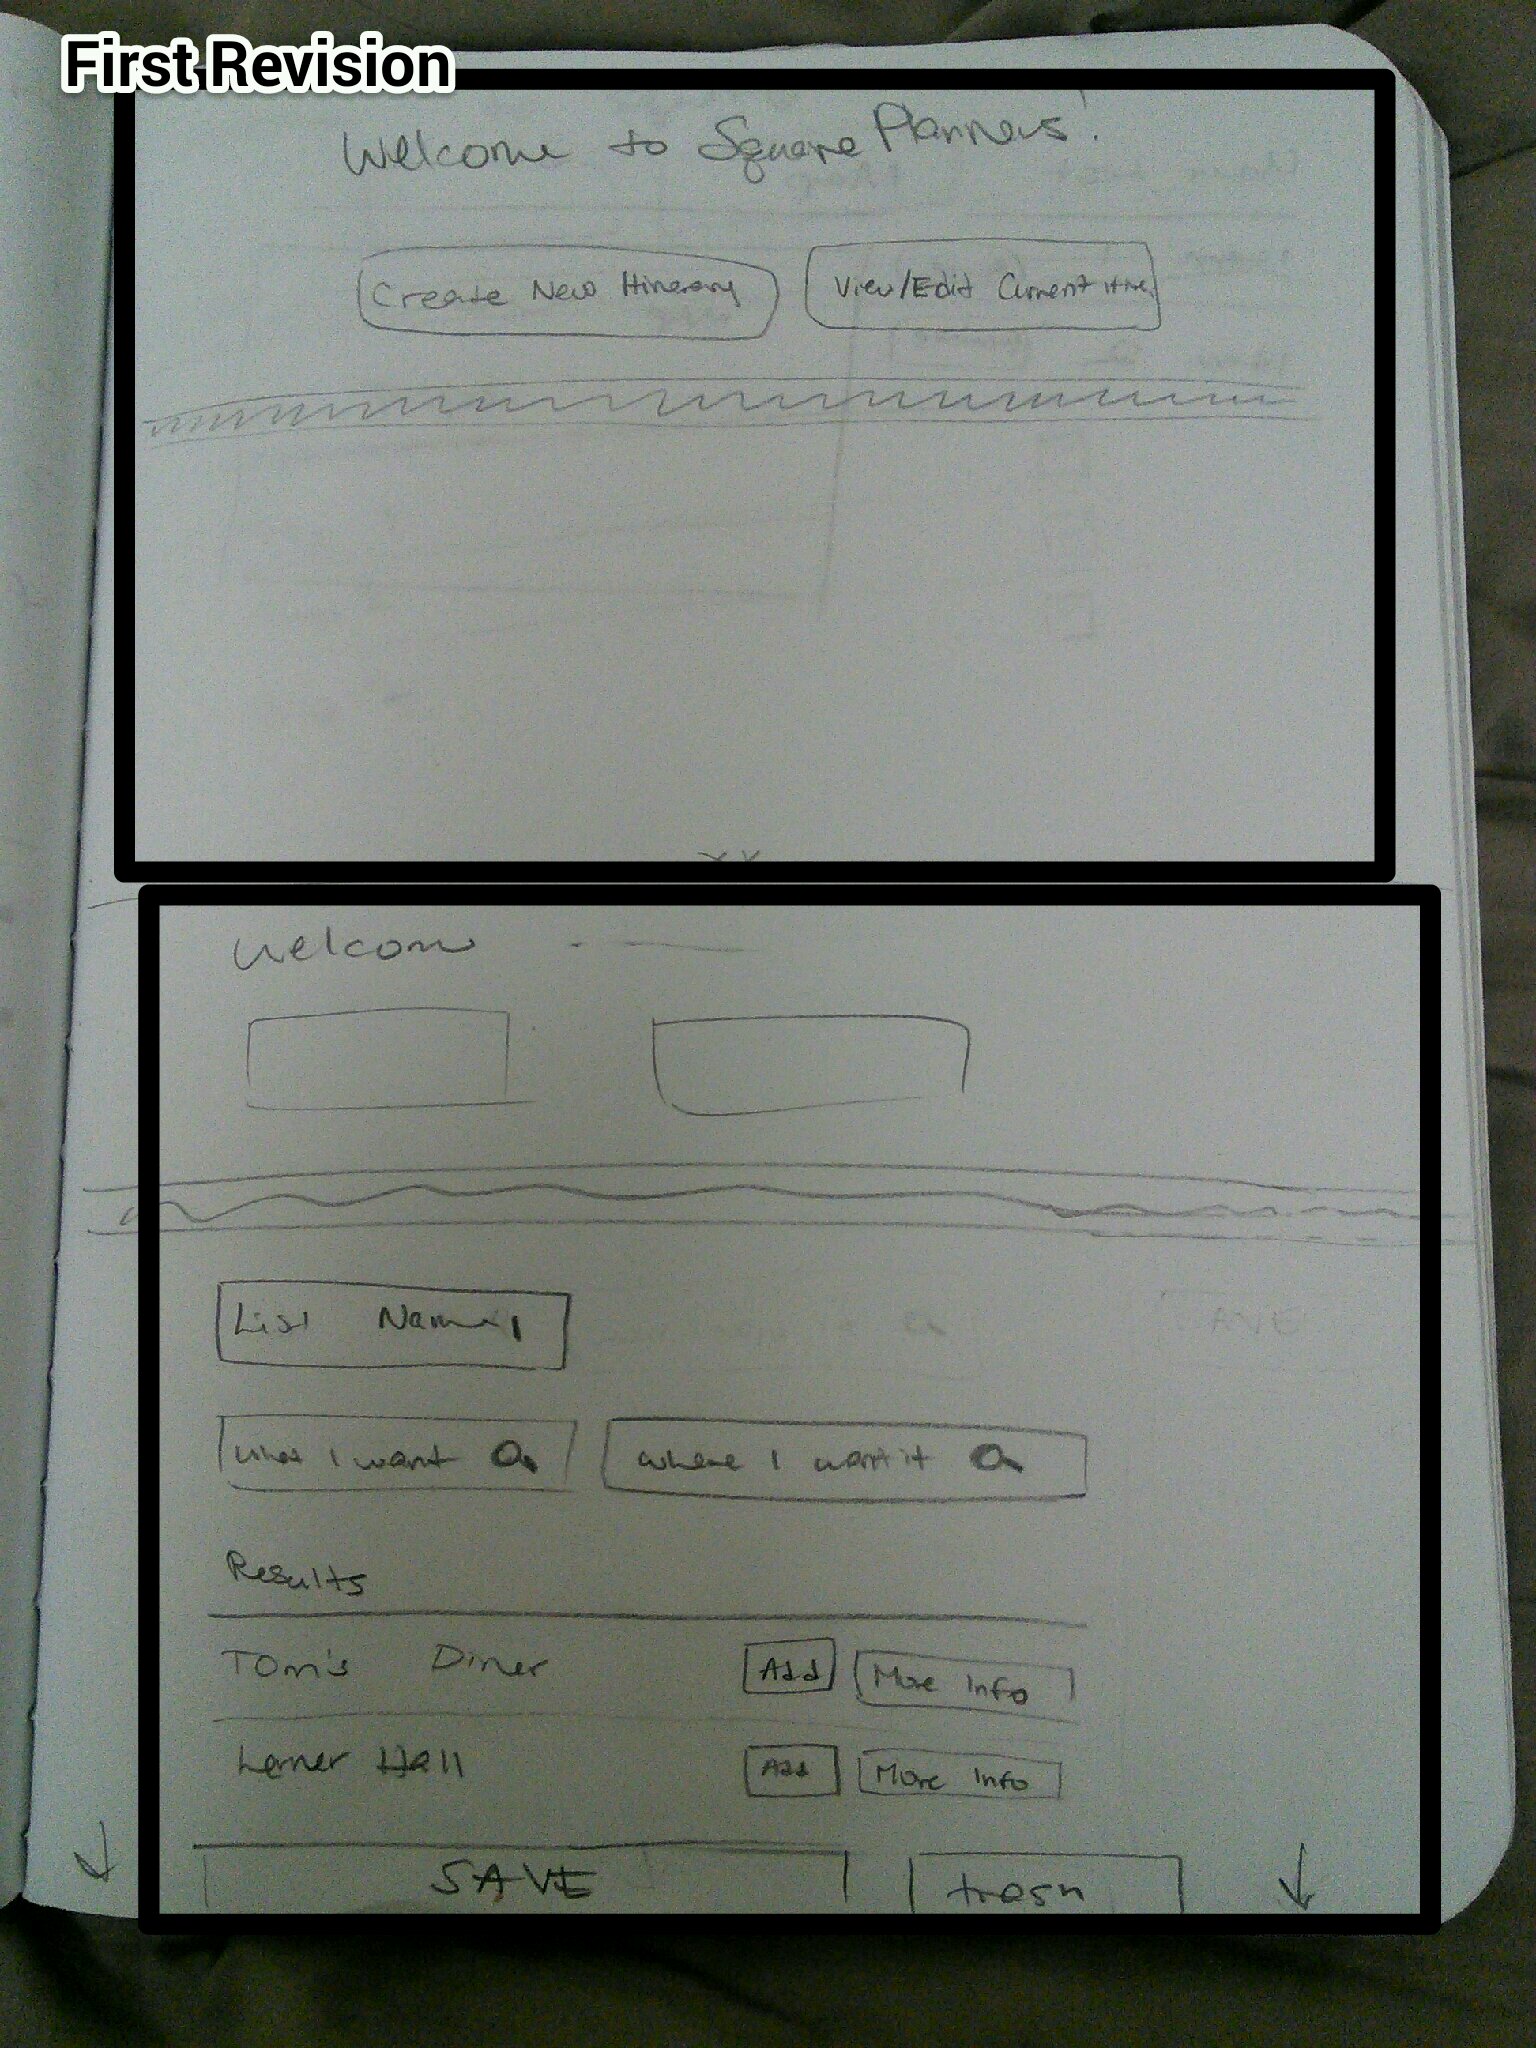 First Revision
Welcome to Square Planners!
Create New Itinerary
View/Edit Current Itine.
Welcom
List Name
What I want
where I want it
Results
Tom's Diner Add More Info
Lerner Hall Add More Info
SAVE trash